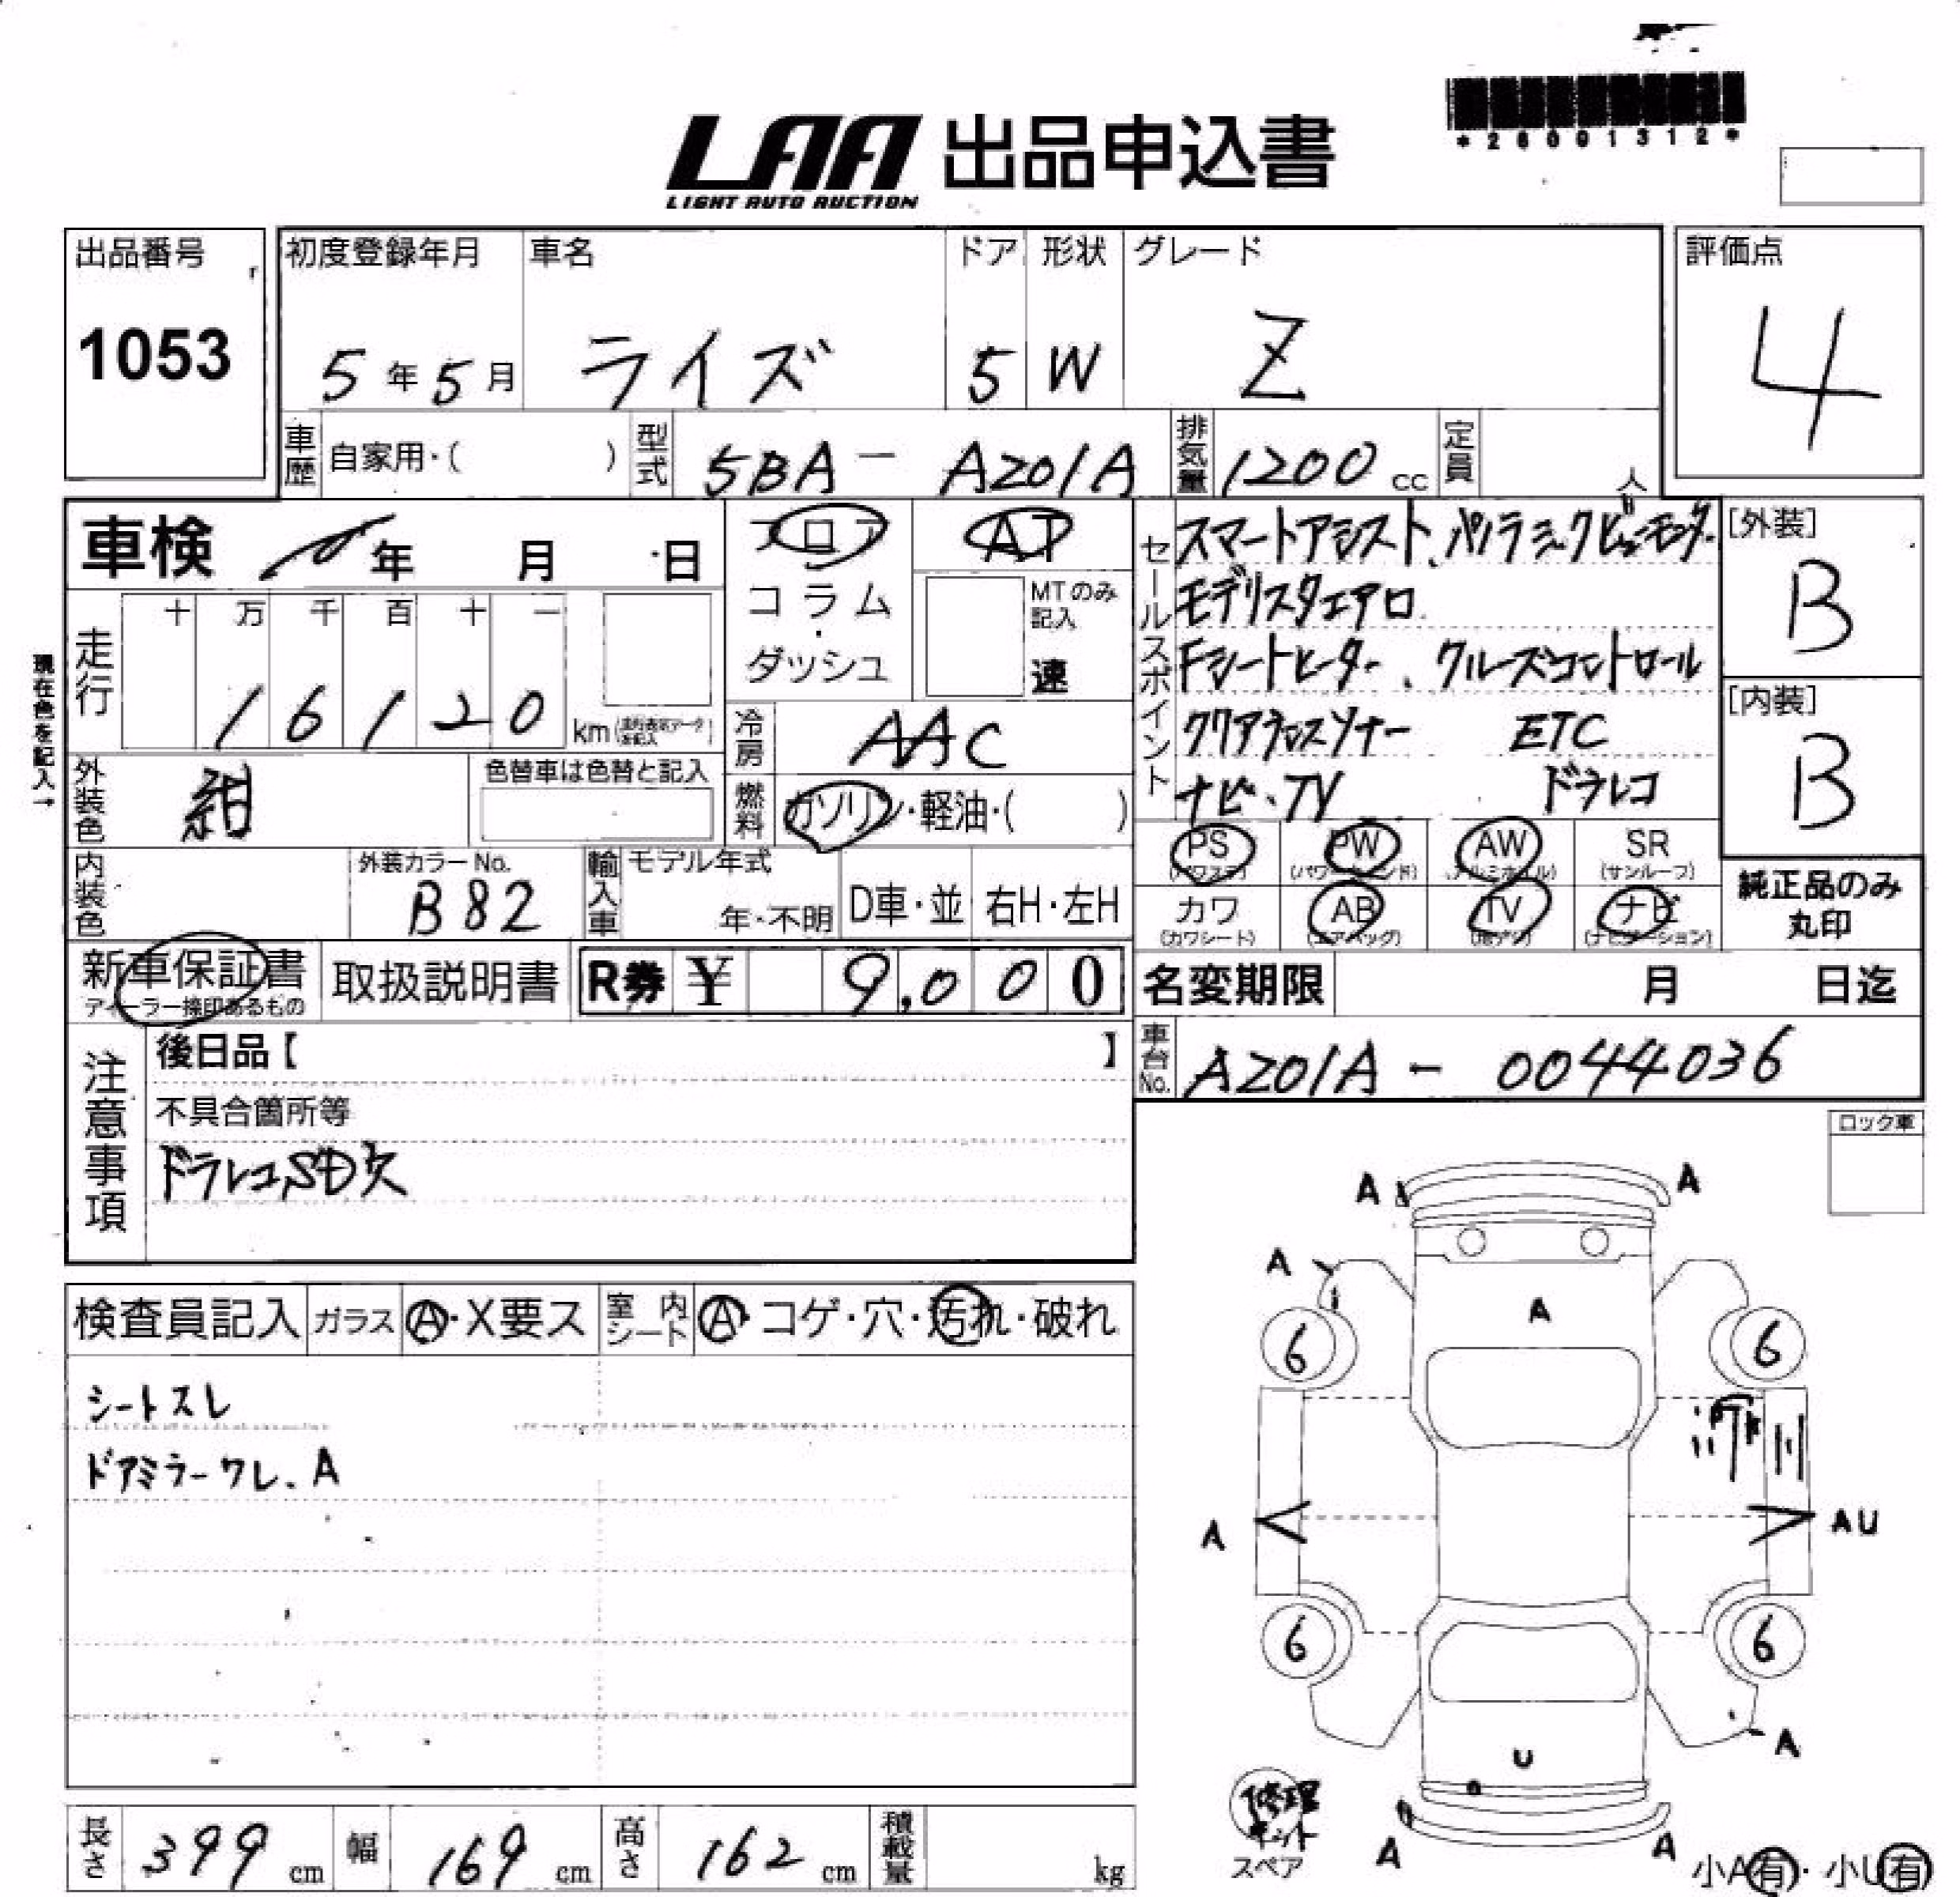 *26001312*
LAA 出品申込書
LIGHT AUTO AUCTION
出品番号
1053
初度登録年月
5年5月
車名
ライズ
ドア
5
形状
W
グレード
Z
評価点
4
車歴 自家用・( )
型式 5BA - A201A
排気量 1200 cc
定員 人
車検 年 月 日
フロア
コラム
・
ダッシュ
AT
MTのみ
記入
速
走行
十 万 千 百 十 一
1 6 1 2 0 km
現在色を記入→
冷房 AAC
燃料 ガソリン・軽油・( )
外装色 紺
色替車は色替と記入
内装色
外装カラーNo.
B82
輸入車
モデル年式
年・不明
D車・並
右H・左H
セールスポイント
スマートアシスト、パノラミックビューモニター
モデリスタエアロ
Fシートヒーター、クルーズコントロール
クリアランスソナー ETC
ナビ、TV ドラレコ
[外装]
B
[内装]
B
PS (パワステ)
PW (パワーウィンド)
AW (アルミホイル)
SR (サンルーフ)
カワ (カワシート)
AB (エアバッグ)
TV (地デジ)
ナビ (ナビゲーション)
純正品のみ
丸印
新車保証書
ディーラー捺印あるもの
取扱説明書
R券 ¥ 9,000
名変期限 月 日迄
車台No. A201A - 0044036
注意事項
後日品【 】
不具合箇所等
ドラレコSD欠
ロック車
検査員記入
ガラス Ⓐ・X要ス
室内シート Ⓐ・コゲ・穴・汚れ・破れ
シートスレ
ドアミラーワレ、A
A A
A
A
6 6
A AU
6 6
A
U
A A
修理
キット
スペア
小A有・小U有
長さ 399 cm
幅 169 cm
高さ 162 cm
積載量 kg